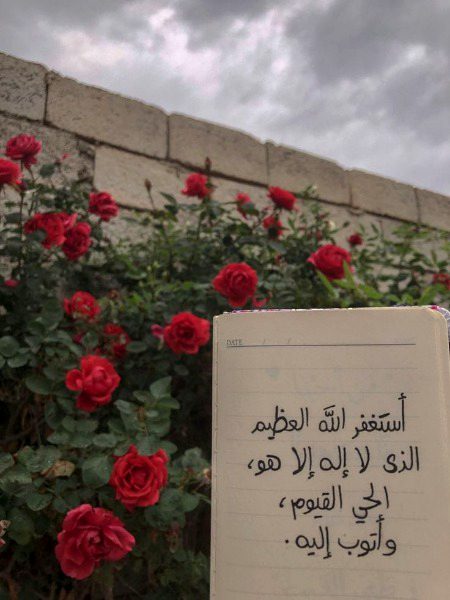 DATE / /
أستغفر الله العظيم
الذى لا إله إلا هو،
الحي القيوم،
وأتوب إليه.